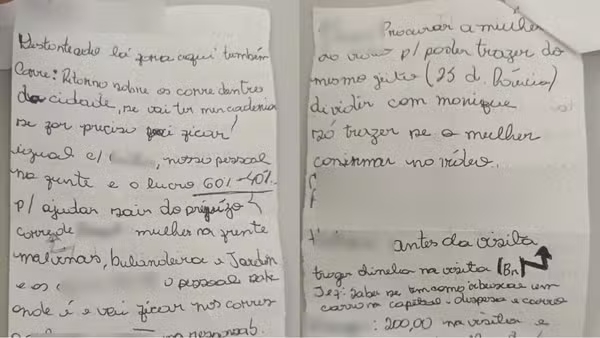 Destonteado lá fora aqui também
Corre: Retorno sobre os corre dentro
da cidade, se vai ter mercadoria
se for preciso ficar!
igual c/ , nosso pessoal
na frente e o lucro 60% - 40%
p/ ajudar sair do prejuízo
corre de mulher na frente
malvinas, bulandeira e Jardim
e os o pessoal sabe
onde é e vai ficar nos corres
Procurar a mulher
ao vivo p/ poder trazer do
mesmo jeito (25 d.
dividir com monique
só trazer se a mulher
confirmar no vídeo.
antes da visita
trazer dinelo na visita (Bn)
Jef: Saber se tem como abençoar em
carro na capital. despesa e carro
: 200,00 na visita e